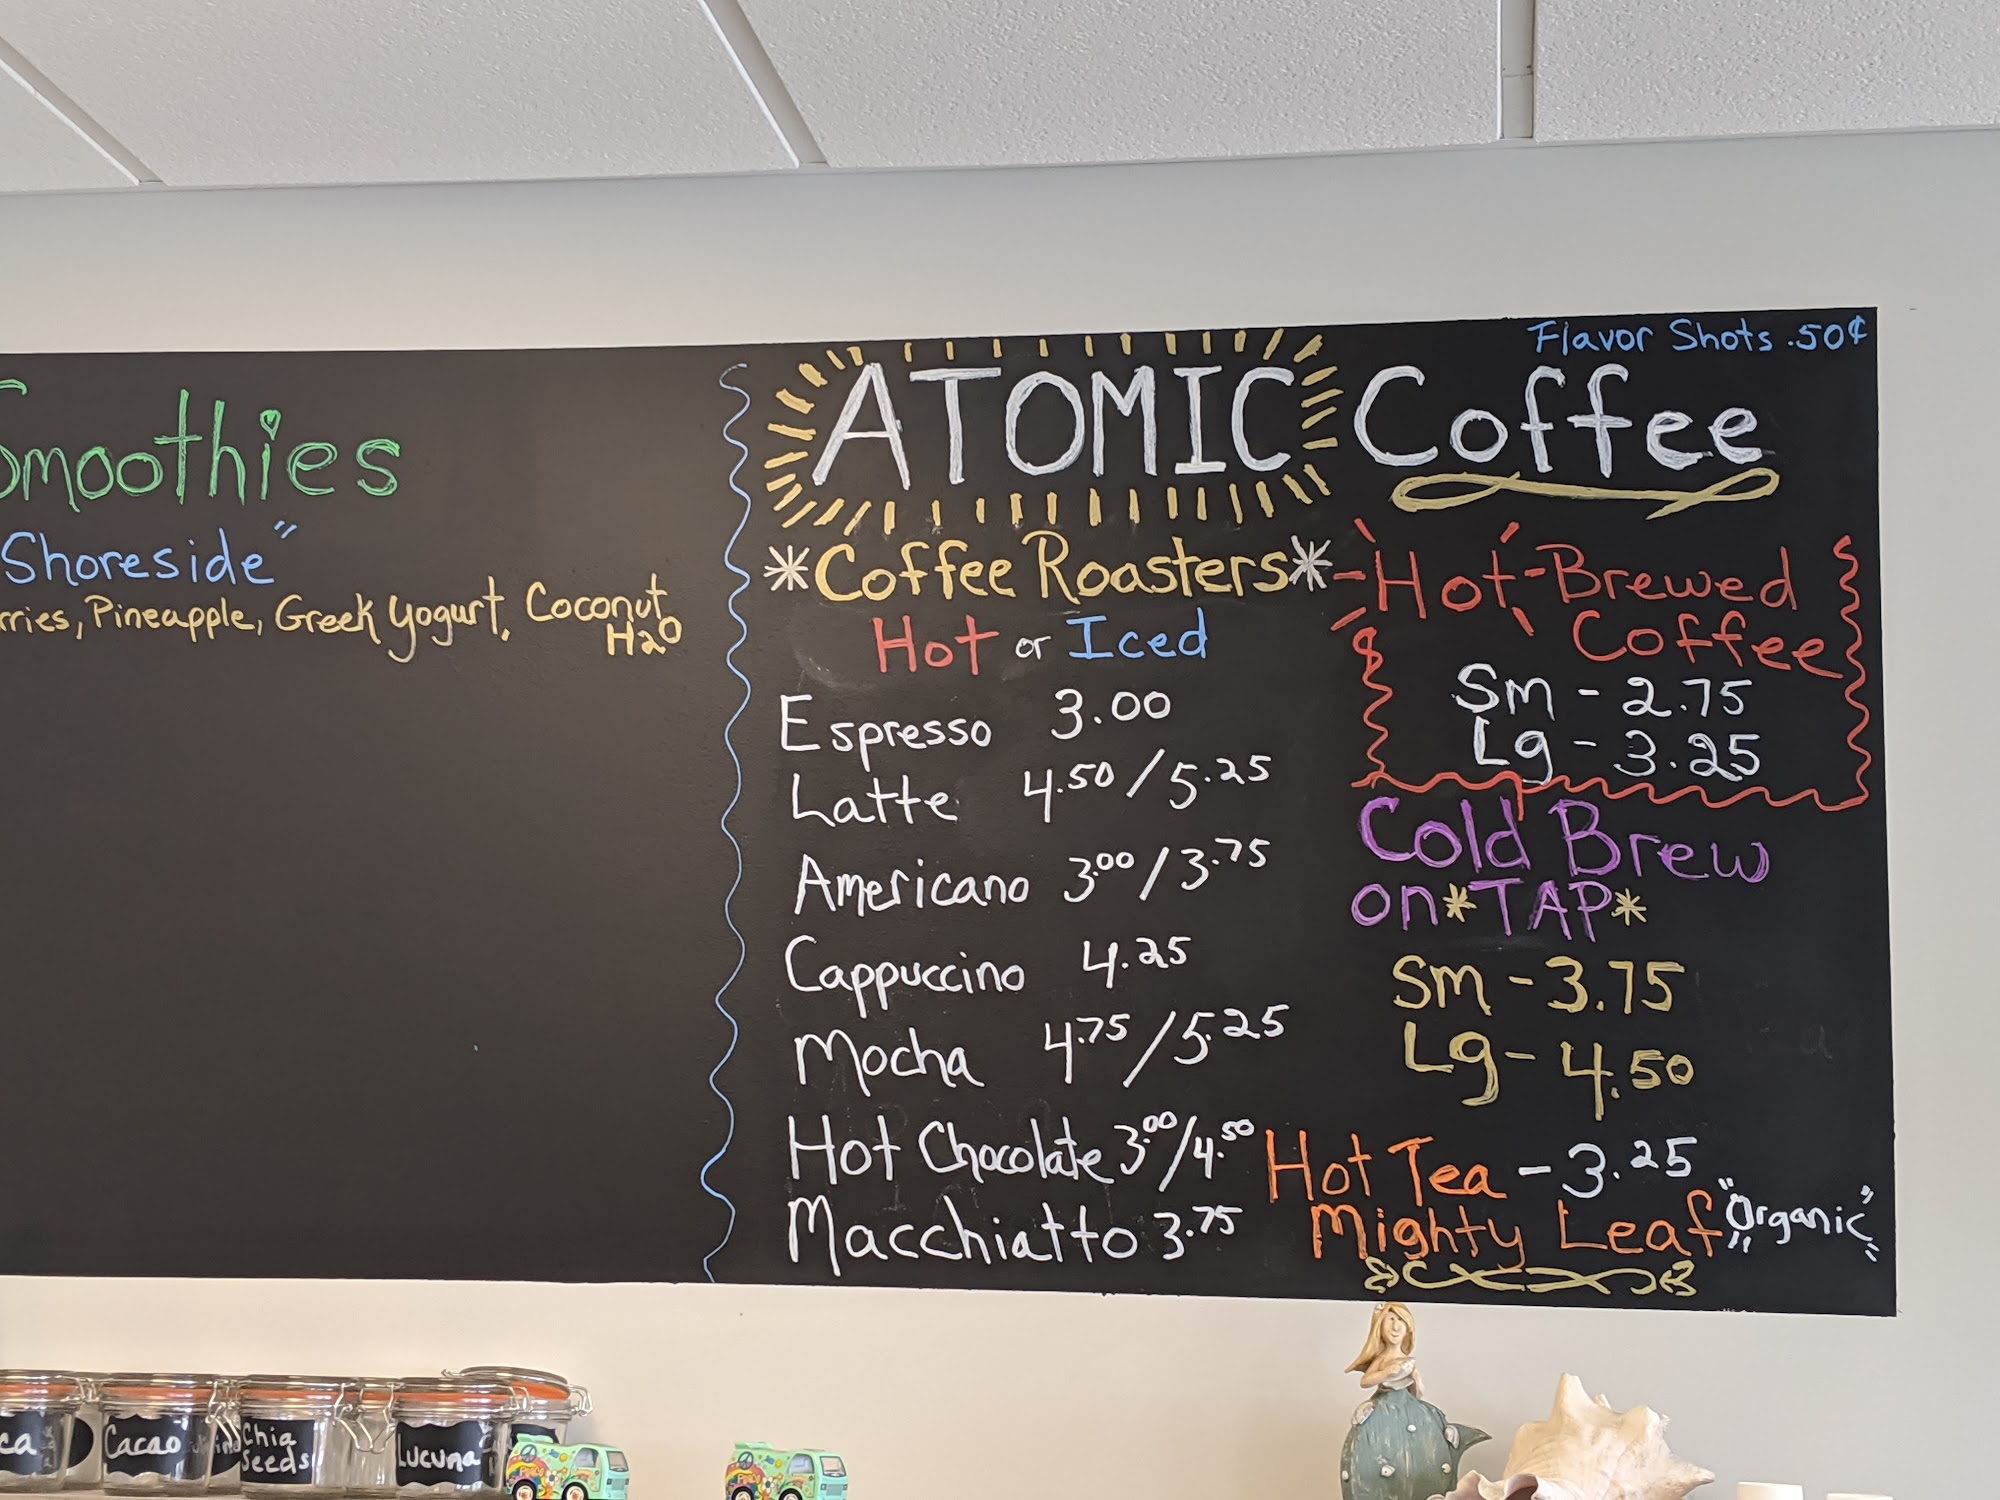 Smoothies
Shoreside"
Pineapple, Greek Yogurt, Coconut
H2O
Flavor Shots .50¢
ATOMIC Coffee
*Coffee Roasters*
Hot or Iced
Espresso 3.00
Latte 4.50/5.25
Americano 3.00/3.75
Cappuccino 4.25
Mocha 4.75/5.25
Hot Chocolate 3.00/4.50
Macchiatto 3.75
-Hot-Brewed
Coffee
Sm - 2.75
Lg - 3.25
Cold Brew
on *TAP*
Sm - 3.75
Lg - 4.50
Hot Tea - 3.25
Mighty Leaf "Organic"
Cacao
Chia
Seeds
Lucuma